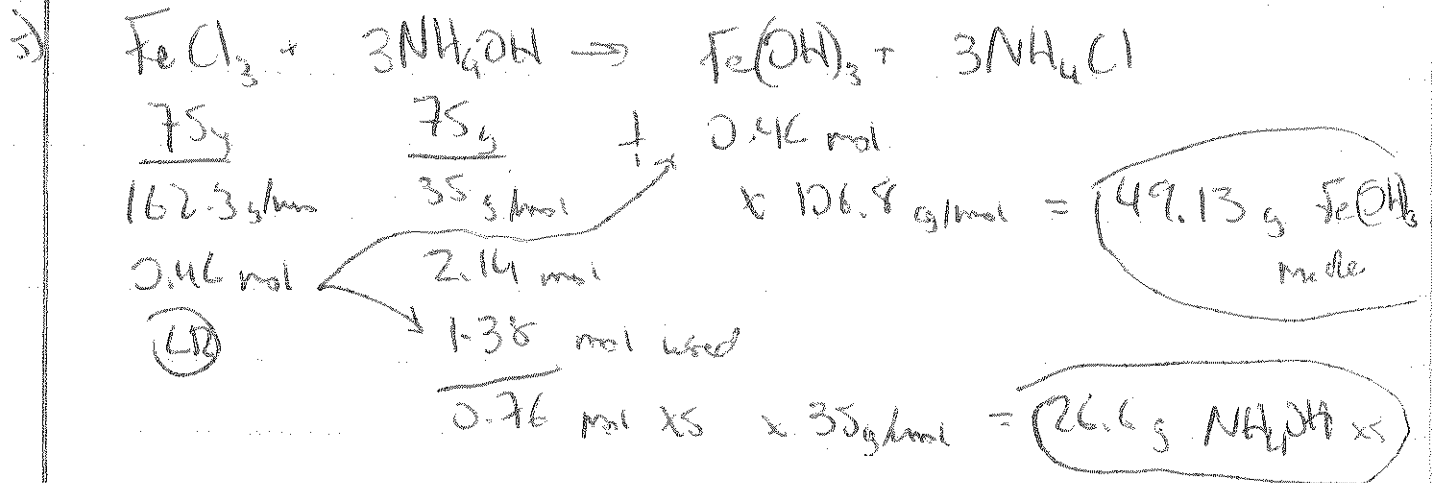 5) FeCl₃ + 3NH₄OH → Fe(OH)₃ + 3NH₄Cl
75g 75g 0.46 mol
162.3 g/mol 35 g/mol x 106.8 g/mol = 49.13 g Fe(OH)₃
0.46 mol 2.14 mol made
LR 1.38 mol used
0.76 mol xs x 35g/mol = 26.6 g NH₄OH xs